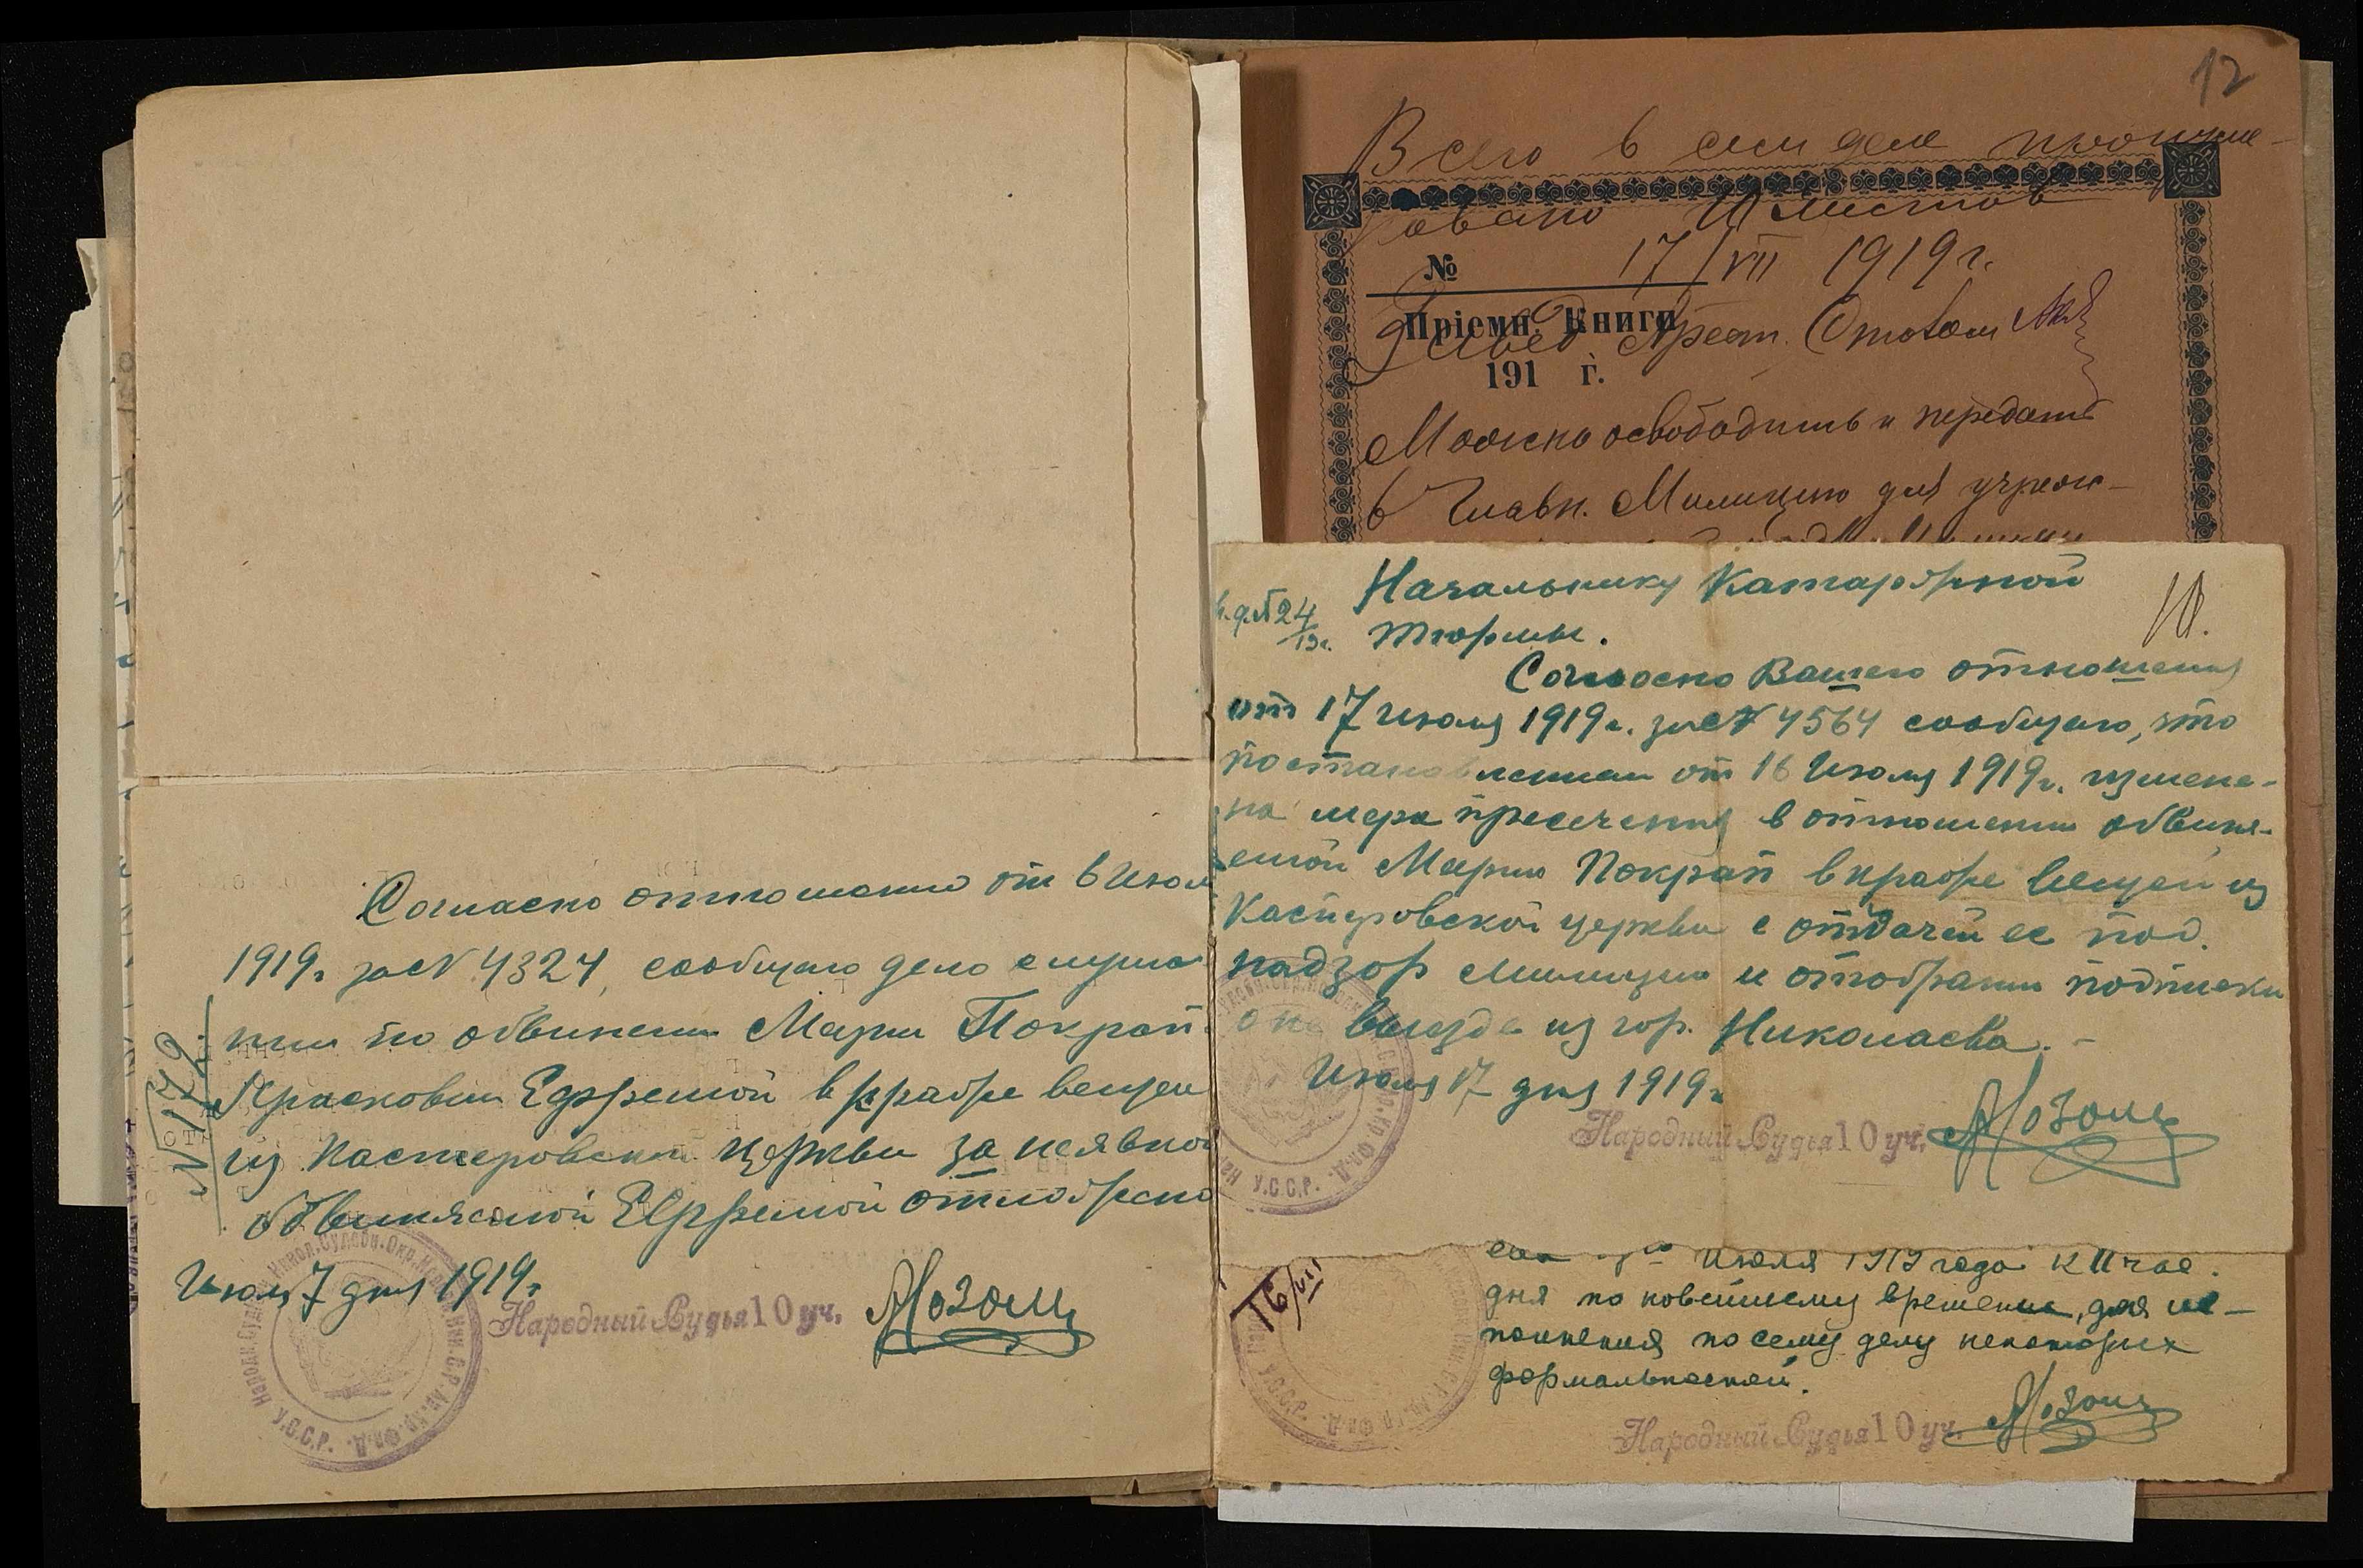 Согласно отношению от 6 Июля
1919 г за № 4324, сообщаю дело слуша
нием по обвинению Марии Покрап
Прасковии Ефремой в краже вещей
из Касперовской церкви за неявкой
обвиняемой Ефремой отложено
Июля 7 дня 1919 г
Народный Судья 10 уч. Мозош
№ 172
Народн. Судья Никол. Судебн. Окр.
У.С.С.Р.
12
Всего в сем деле прошну-
ровано 10 листов
№ 17/VII 1919 г.
Пріемн. Книги
Арест. Столом
191 г.
Можно освободить и передать
в Главн. Милицию для учреж-
Начальнику Каторжной
тюрьмы.
24/19 г.
10.
Согласно Вашего отношения
от 17 Июля 1919 г. за № 4564 сообщаю, что
постановлением от 16 Июля 1919 г. измене-
на мера пресечения в отношении обвиня-
емой Марии Покрап в краже вещей из
Касперовской церкви с отдачей ее под
надзор милиции и отобрании подписки
о не выезде из гор. Николаева. -
Июля 17 дня 1919 г
Народный Судья 10 уч. Мозош
У.С.С.Р.
16/VII
Июля 1919 года к 11 час.
дня по новейшему времени, для ис-
полнения по сему делу некоторых
формальностей.
Народный Судья 10 уч. Мозош
У.С.С.Р.